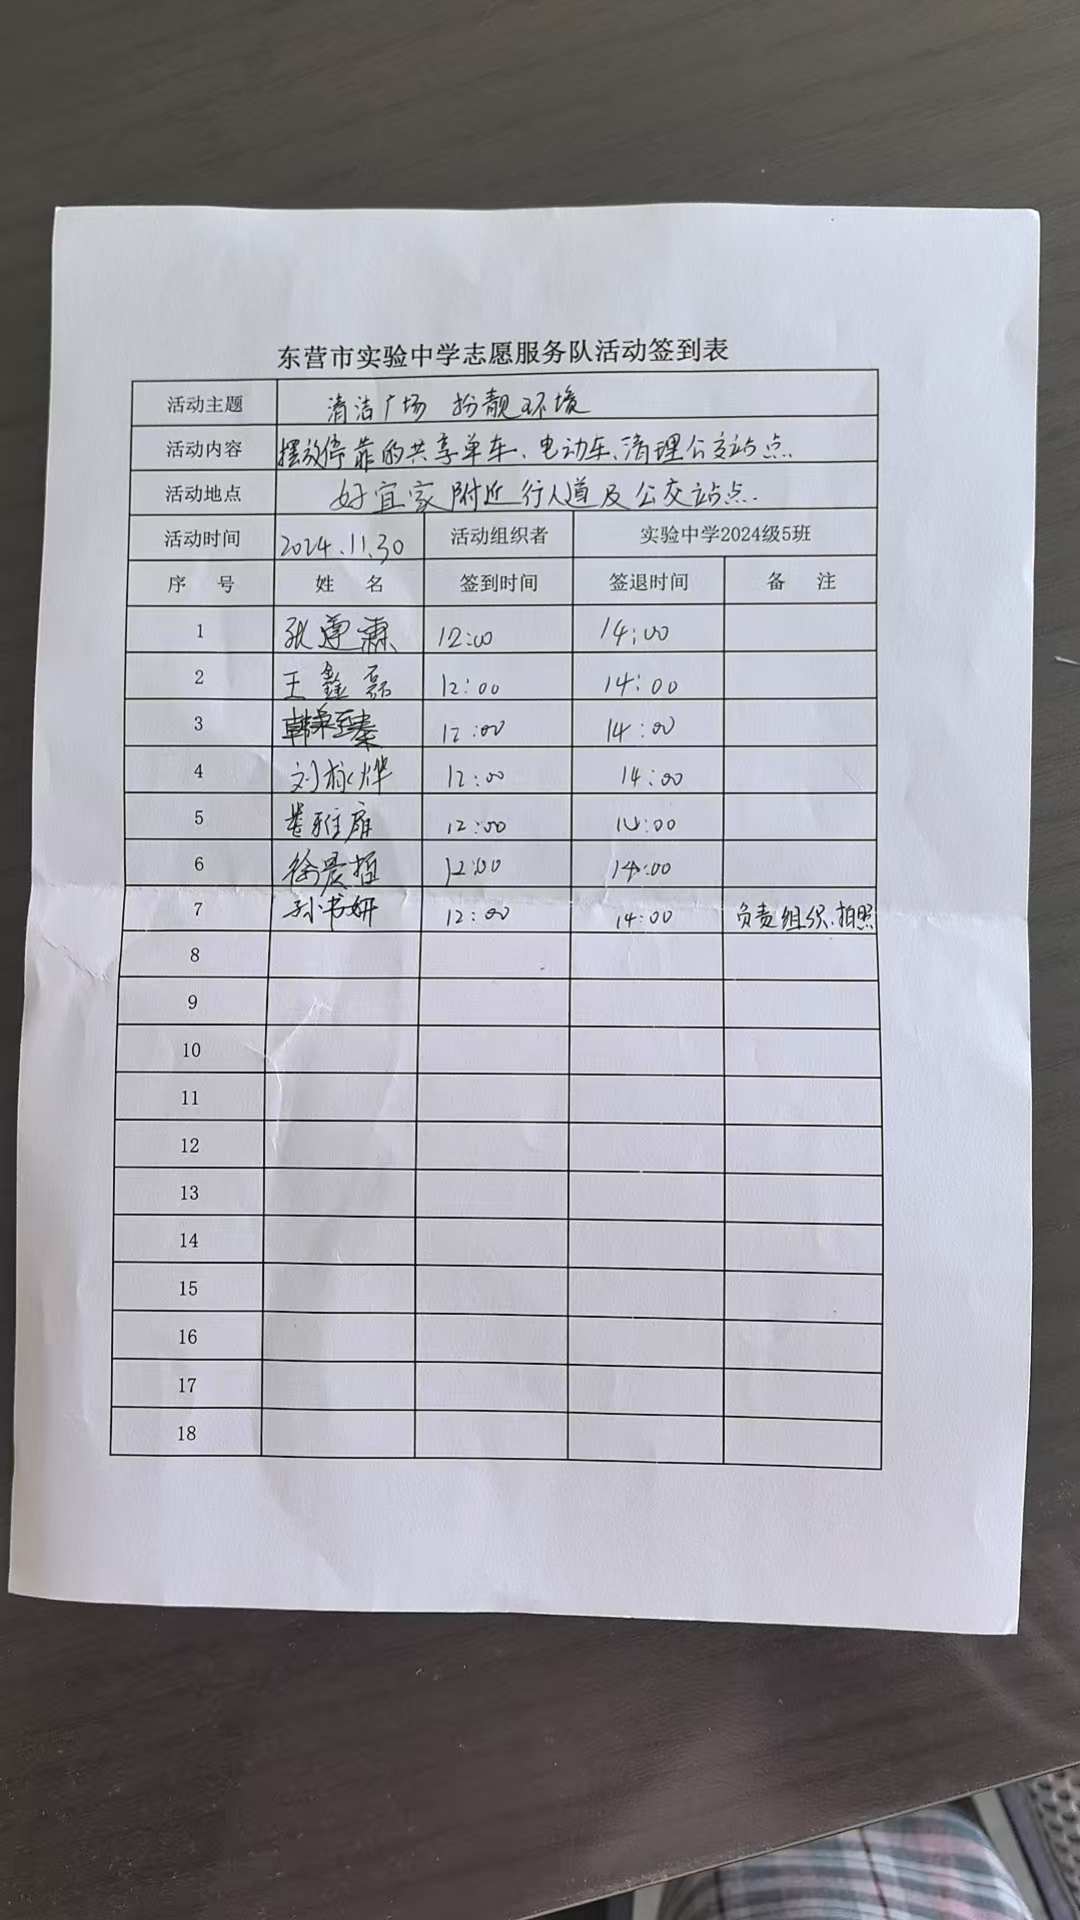 东营市实验中学志愿服务队活动签到表
活动主题 清洁广场 扮靓环境
活动内容 摆放停靠的共享单车、电动车、清理公交站点.
活动地点 好宜家附近行人道及公交站点.
活动时间 2024.11.30 活动组织者 实验中学2024级5班
序 号 姓 名 签到时间 签退时间 备 注
1 张 霖 12:00 14:00
2 王鑫磊 12:00 14:00
3 韩 秦 12:00 14:00
4 刘 烨 12:00 14:00
5 雅 12:00 14:00
6 徐晨 12:00 14:00
7 孙书妍 12:00 14:00 负责组织、拍照
8
9
10
11
12
13
14
15
16
17
18